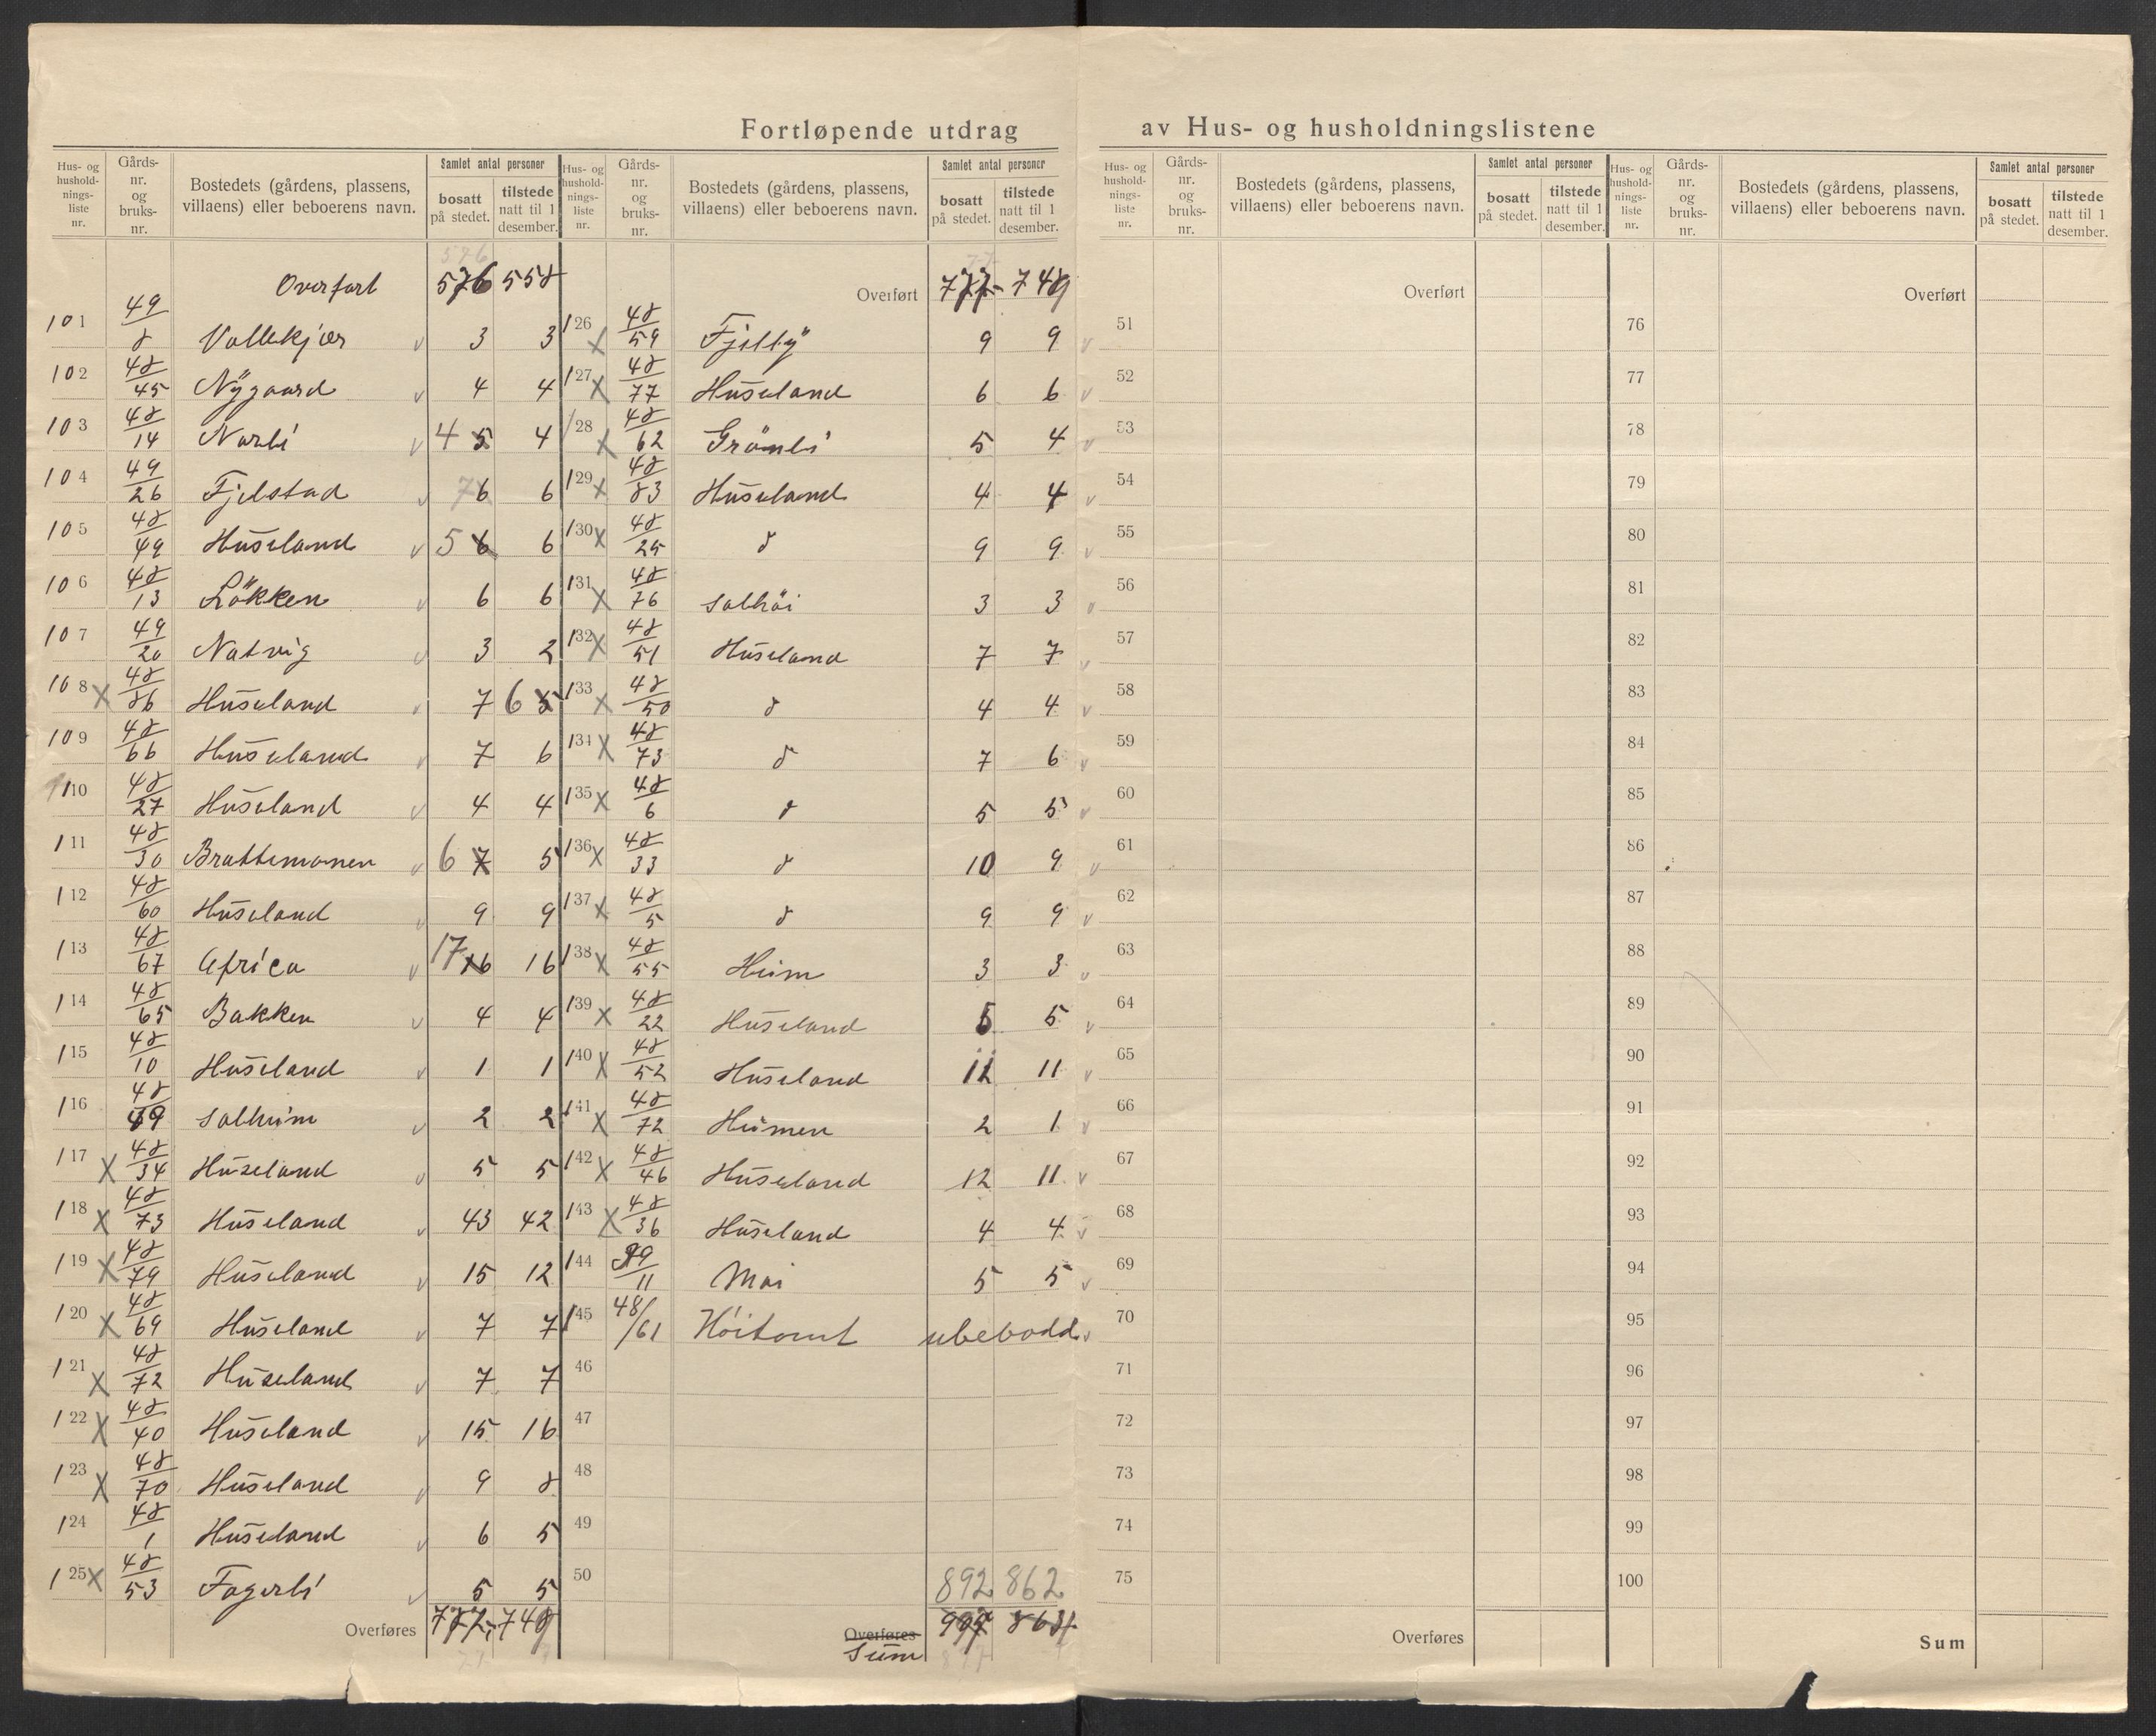 Fortløpende utdrag av Hus- og husholdningslistene
Hus- og hushold-nings-liste nr.
Gårds-nr. og bruks-nr.
Bostedets (gårdens, plassens, villaens) eller beboerens navn.
Samlet antal personer
bosatt på stedet.
tilstede natt til 1 desember.
Overført 576 558
101 49/8 Vollekjær v 3 3
102 48/45 Nÿgaard v 4 4
103 48/14 Norli v 4 5 4
104 49/26 Fjelstad v 7 6 6
105 48/49 Huseland v 5 6 6
106 48/13 Løkken v 6 6
107 49/20 Natvig v 3 2
108 X 48/86 Huseland v 7 6 5
109 48/66 Huseland v 7 6
110 48/27 Huseland v 4 4
111 48/30 Brattemonen v 6 7 5
112 48/60 Huseland v 9 9
113 48/67 Africa v 17 16 16
114 48/65 Bakken v 4 4
115 48/10 Huseland v 1 1
116 48/49 Solheim v 2 2
117 X 48/34 Huseland v 5 5
118 X 48/73 Huseland v 43 42
119 X 48/79 Huseland v 15 12
120 X 48/69 Huseland v 7 7
121 X 48/72 Huseland v 7 7
122 X 48/40 Huseland v 15 16
123 X 48/70 Huseland v 9 8
124 48/1 Huseland v 6 5
125 X 48/53 Fagerli v 5 5
Overføres
Hus- og hushold-nings-liste nr.
Gårds-nr. og bruks-nr.
Bostedets (gårdens, plassens, villaens) eller beboerens navn.
Samlet antal personer
bosatt på stedet.
tilstede natt til 1 desember.
Overført
126 X 48/59 Fjellÿ 9 9 v
127 X 48/77 Huseland 6 6 v
128 X 48/62 Grönli 5 4 v
129 X 48/83 Huseland 4 4 v
130 X 48/25 d 9 9 v
131 X 48/76 Solhöi 3 3 v
132 X 48/51 Huseland 7 7 v
133 X 48/50 d 4 4 v
134 X 48/73 d 7 6 v
135 X 48/6 d 5 5 v
136 X 48/33 d 10 9 v
137 X 48/5 d 9 9 v
138 X 48/55 Heim 3 3 v
139 X 48/22 Huseland 5 5 v
140 X 48/52 Huseland 11 11 v
141 X 48/72 Heimen 2 1 v
142 X 48/46 Huseland 12 11 v
143 X 48/36 Huseland 4 4 v
144 49/11 Moi 5 5 v
145 48/61 Høitomt ubebodd v
46
47
48
49
50 892 862
Overføres
Sum
Hus- og hushold-nings-liste nr.
Gårds-nr. og bruks-nr.
Bostedets (gårdens, plassens, villaens) eller beboerens navn.
Samlet antal personer
bosatt på stedet.
tilstede natt til 1 desember.
Overført
51
52
53
54
55
56
57
58
59
60
61
62
63
64
65
66
67
68
69
70
71
72
73
74
75
Overføres
Hus- og hushold-nings-liste nr.
Gårds-nr. og bruks-nr.
Bostedets (gårdens, plassens, villaens) eller beboerens navn.
Samlet antal personer
bosatt på stedet.
tilstede natt til 1 desember.
Overført
76
77
78
79
80
81
82
83
84
85
86
87
88
89
90
91
92
93
94
95
96
97
98
99
100
Sum